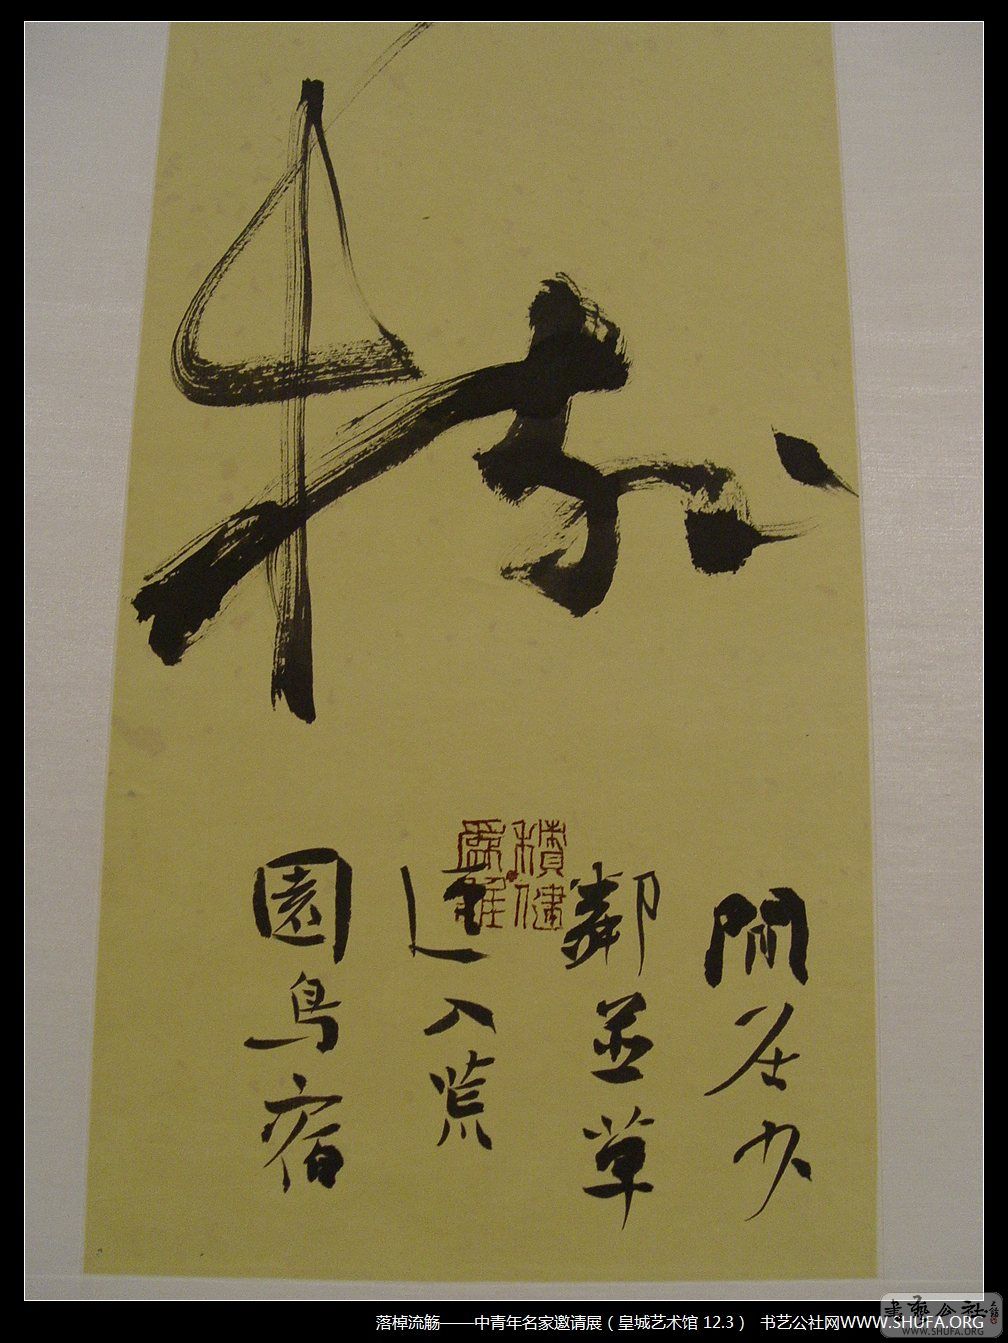 閑居少
鄰並草
逕入荒
園鳥宿
積健
為雄
落棹流觞——中青年名家邀请展（皇城艺术馆 12.3） 书艺公社网WWW.SHUFA.ORG
書藝公社
WWW.SHUFA.ORG